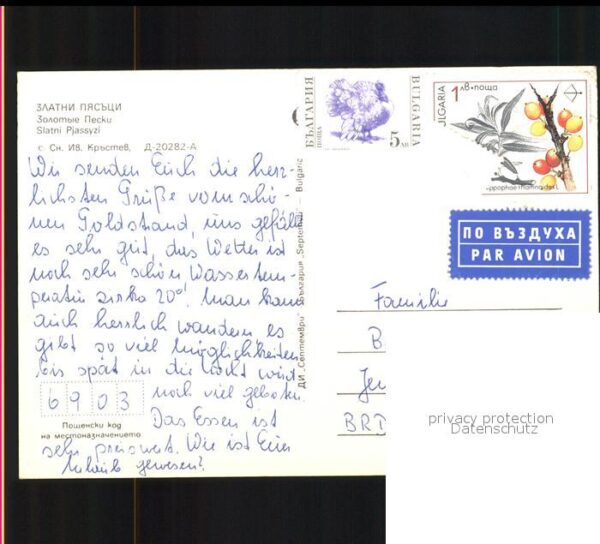 ЗЛАТНИ ПЯСЪЦИ
Золотые Пески
Slatni Pjassyzi
с. Сн. Ив. Кръстев, Д-20282-А
Wir senden Euch die herz-
lichsten Grüße vom schö-
nen Goldstrand, uns gefällt
es sehr gut, das Wetter ist
noch sehr schön Wassertem-
peratur zirka 20°! Man kann
auch herrlich wandern es
gibt so viel Möglichkeiten
bis spät in die Nacht wird
noch viel geboten.
Das Essen ist
sehr preiswert. Wie ist Euer
Urlaub gewesen?
6903
Пощенски код
на местоназначението
ДИ „Септември" България „Septemvri" Bulgaric
БЪЛГАРИЯ
ПОЩА
5 ЛВ
BULGARIA
ULGARIA
1 ЛВ·ПОЩА
ippophae rhamnoides L.
ПО ВЪЗДУХА
PAR AVION
Familie
B
Jen
BRD
privacy protection
Datenschutz